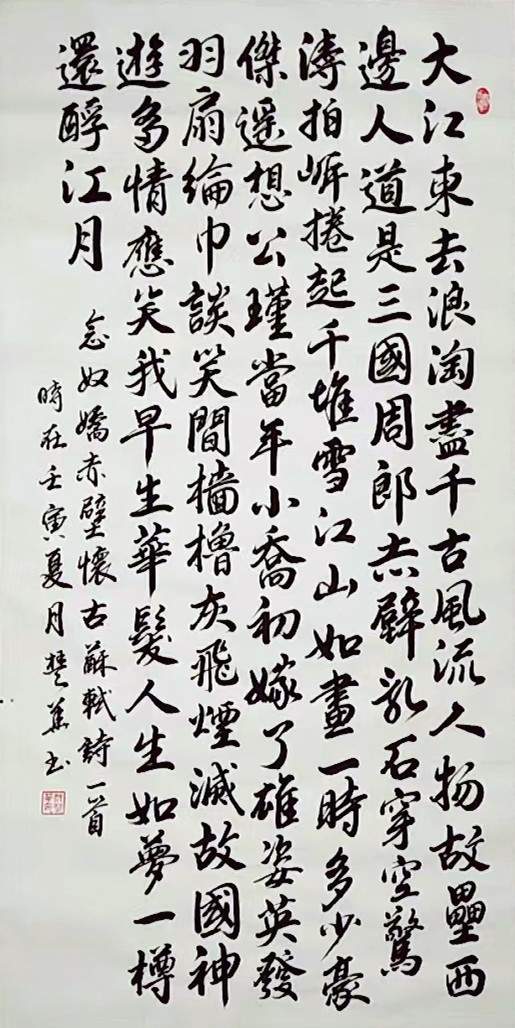 大江東去浪淘盡千古風流人物故壘西
邊人道是三國周郎赤壁乱石穿空驚
濤拍岍捲起千堆雪江山如畫一時多少豪
傑遥想公瑾當年小喬初嫁了雄姿英發
羽扇綸巾談笑間檣櫓灰飛煙滅故國神
遊多情應笑我早生華髮人生如夢一樽
還酹江月
念奴嬌赤壁懷古蘇軾詩一首
時在壬寅夏月楚